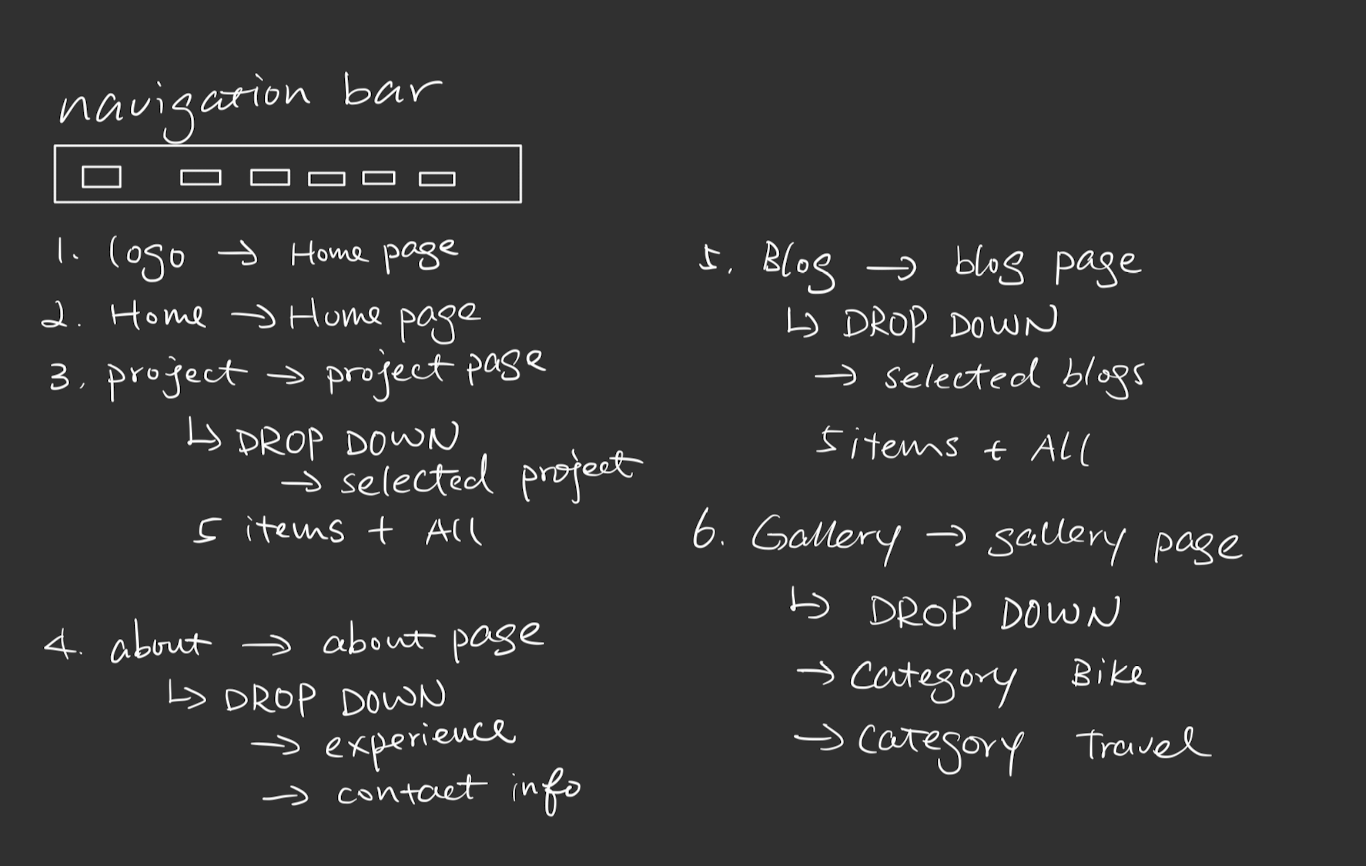 navigation bar
1. logo → Home page
2. Home → Home page
3. project → project page
↳ DROP DOWN
→ selected project
5 items + All
4. about → about page
↳ DROP DOWN
→ experience
→ contact info
5. Blog → blog page
↳ DROP DOWN
→ selected blogs
5 items + All
6. Gallery → gallery page
↳ DROP DOWN
→ Category Bike
→ Category Travel